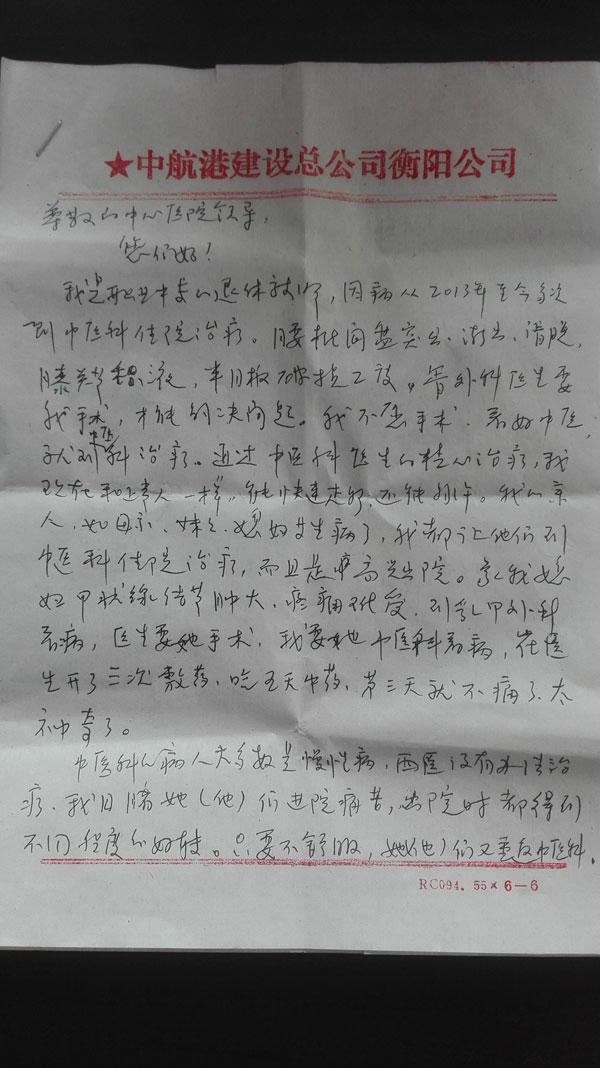 ★中航港建设总公司衡阳公司
尊敬的中心医院领导,
您们好!
我是职业中专的退休教师,因病从2013年至今多次
到中医科住院治疗。腰椎间盘突出、渐出、滑脱,
膝关节积液,半月板破损二度。骨外科医生要
我手术,才能解决问题。我不愿手术.
中医
就到科治疗。通过中医科医生的精心治疗,我
现在和正常人一样,能快速走路,还能。我的亲
人,如母亲、妹妹、媳妇生病了,我都让他们到
中医科住院治疗,而且是高兴出院。象我媳
妇甲状腺结节肿大,疼痛难受,到乳甲外科
看病,医生要她手术,我要她中医科看病,医
生开了三次敷药,吃五天中药,第三天就不痛了,太
神奇了。
中医科的病人大多数是慢性病,西医没有办法治
疗,我目睹她(他)们进院痛苦,出院时都得到
不同程度的好转。只要不舒服,她(他)们又重返中医科。
RC094.55×6-6